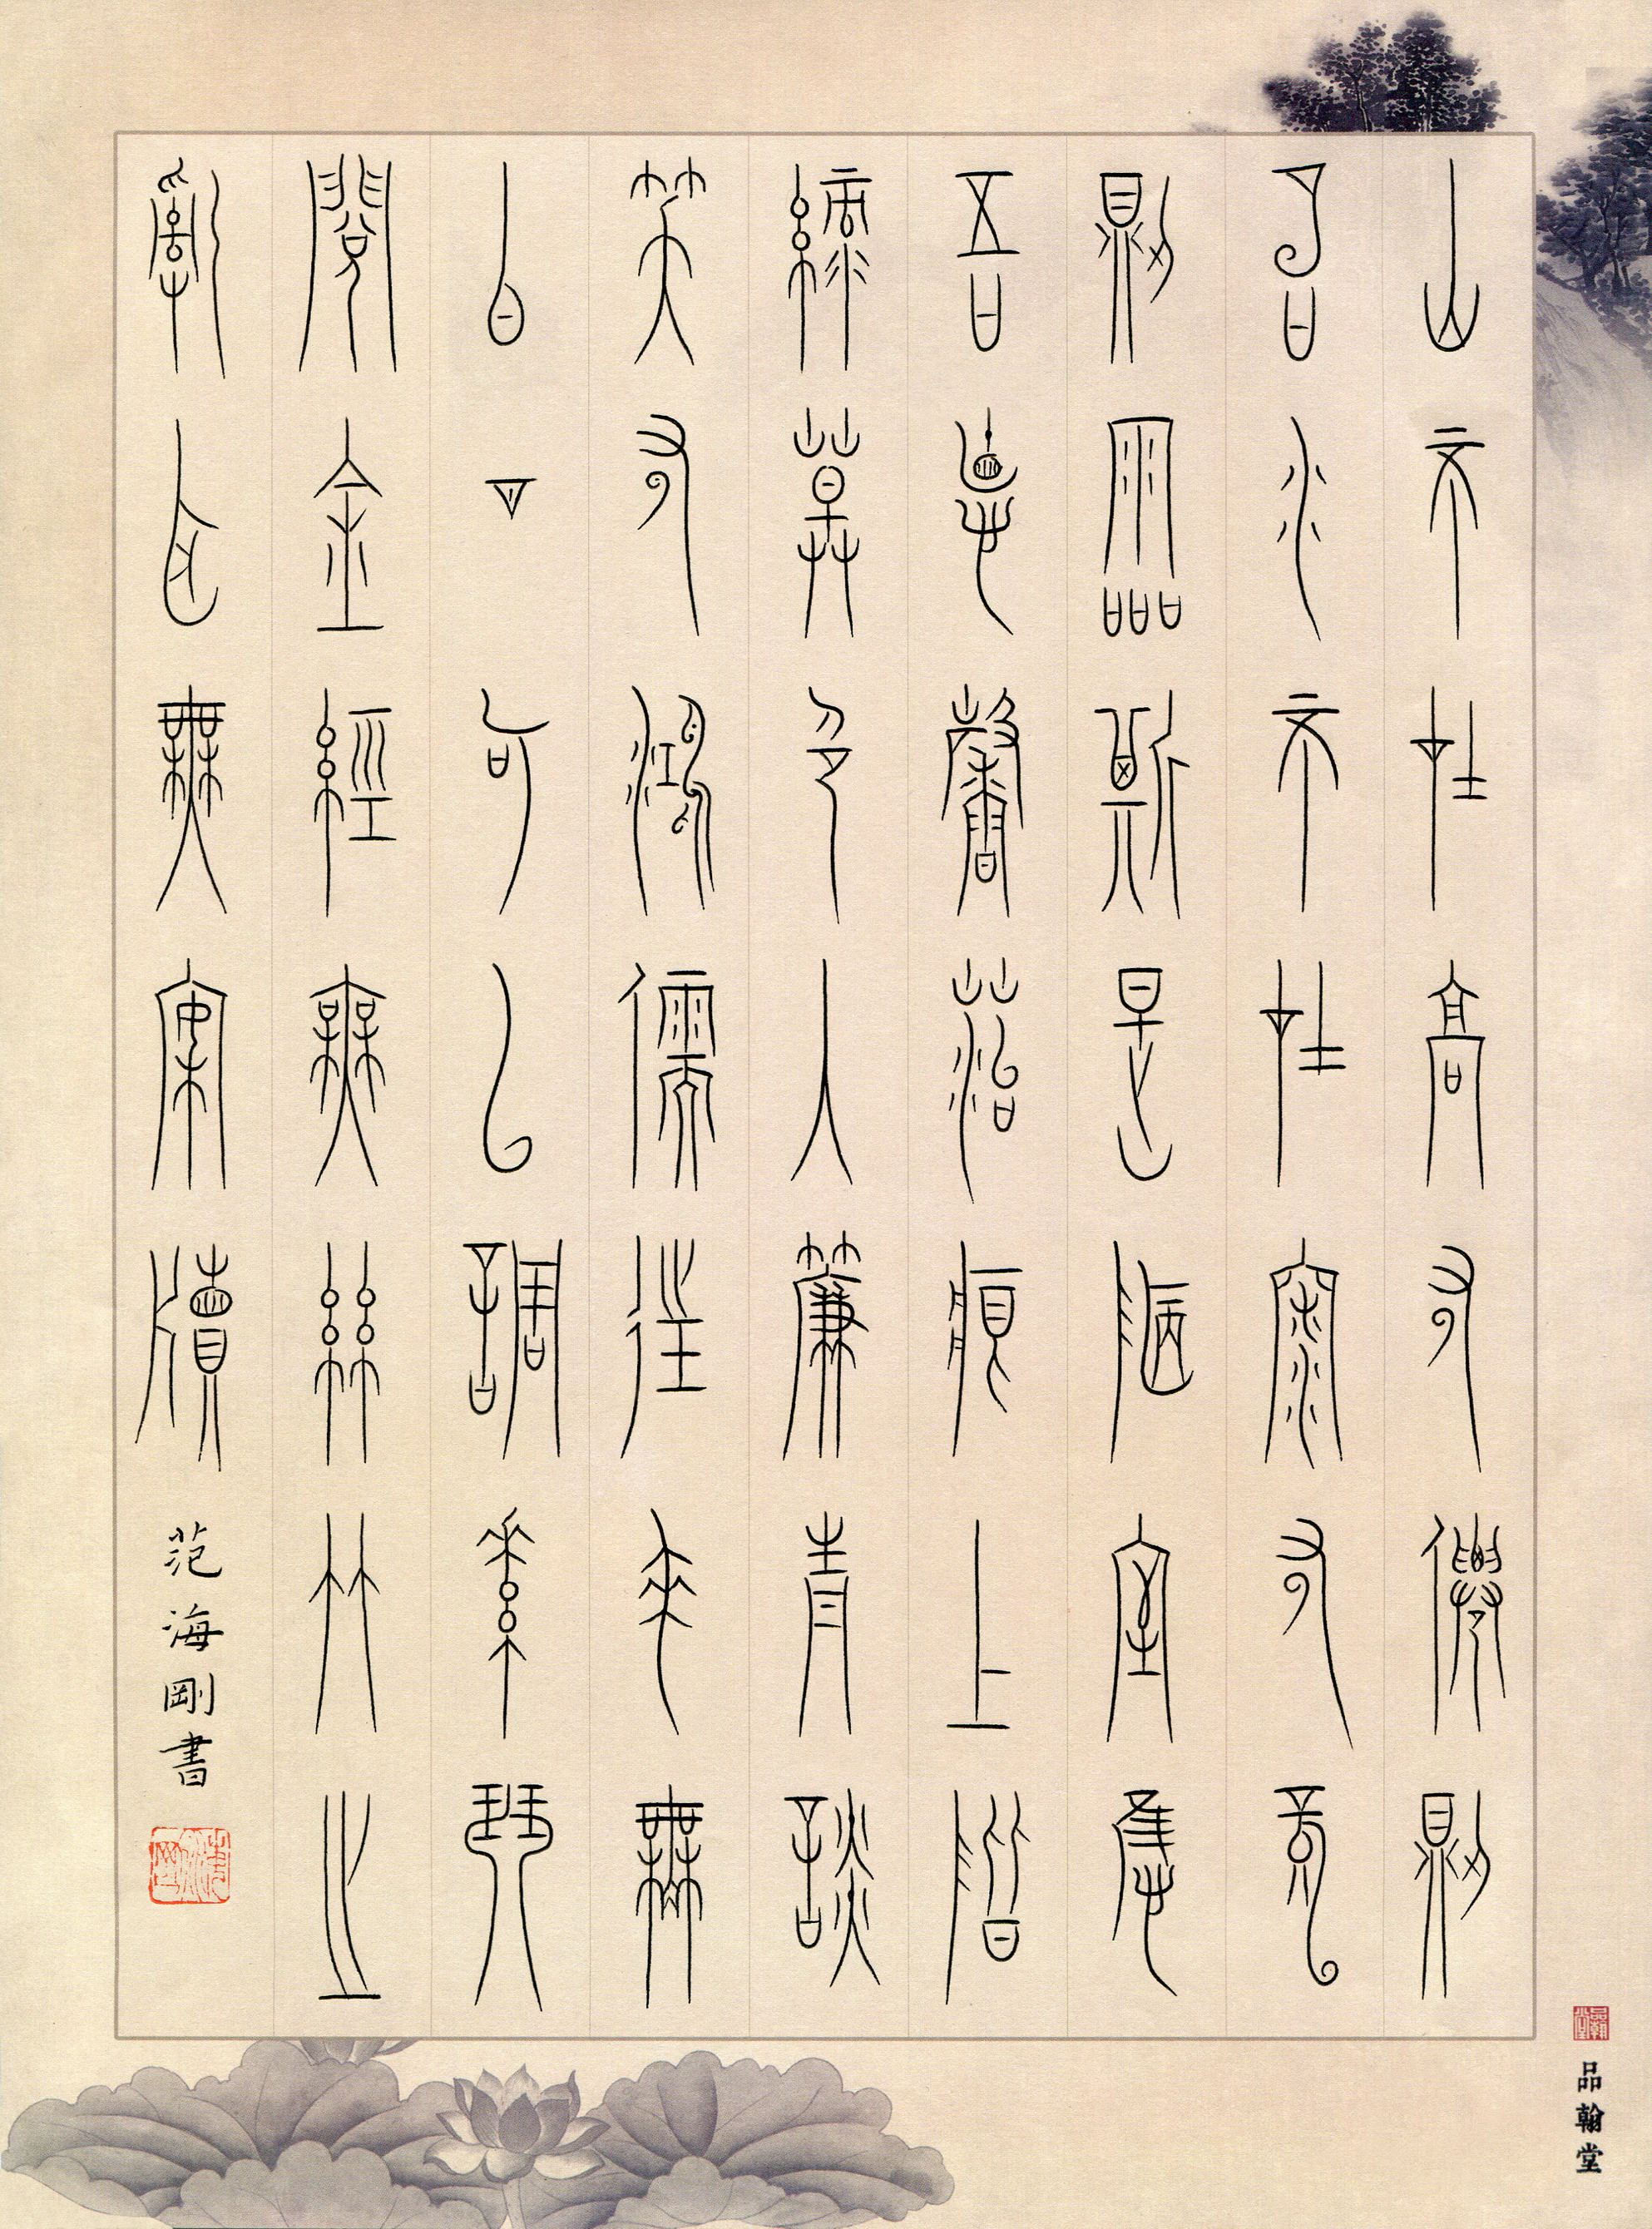 山不在高有僊則
名水不在深有龍
則靈斯是陋室惟
吾德馨苔痕上階
綠草色入簾青談
笑有鴻儒往來無
白丁可以調素琴
閱金經無絲竹之
亂耳無案牘
范海剛書
品翰堂